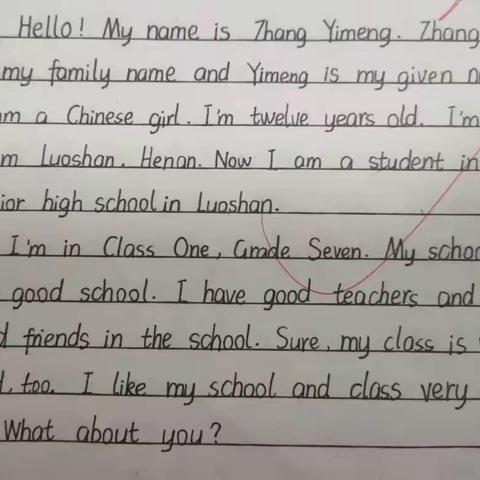 Hello! My name is Zhang Yimeng. Zhang
my family name and Yimeng is my given
a Chinese girl. I'm twelve years old. I'm
Luoshan, Henan. Now I am a student in
high school in Luoshan.
I'm in Class One, Grade Seven. My
good school. I have good teachers and
friends in the school. Sure, my class is
too. I like my school and class very
What about you?